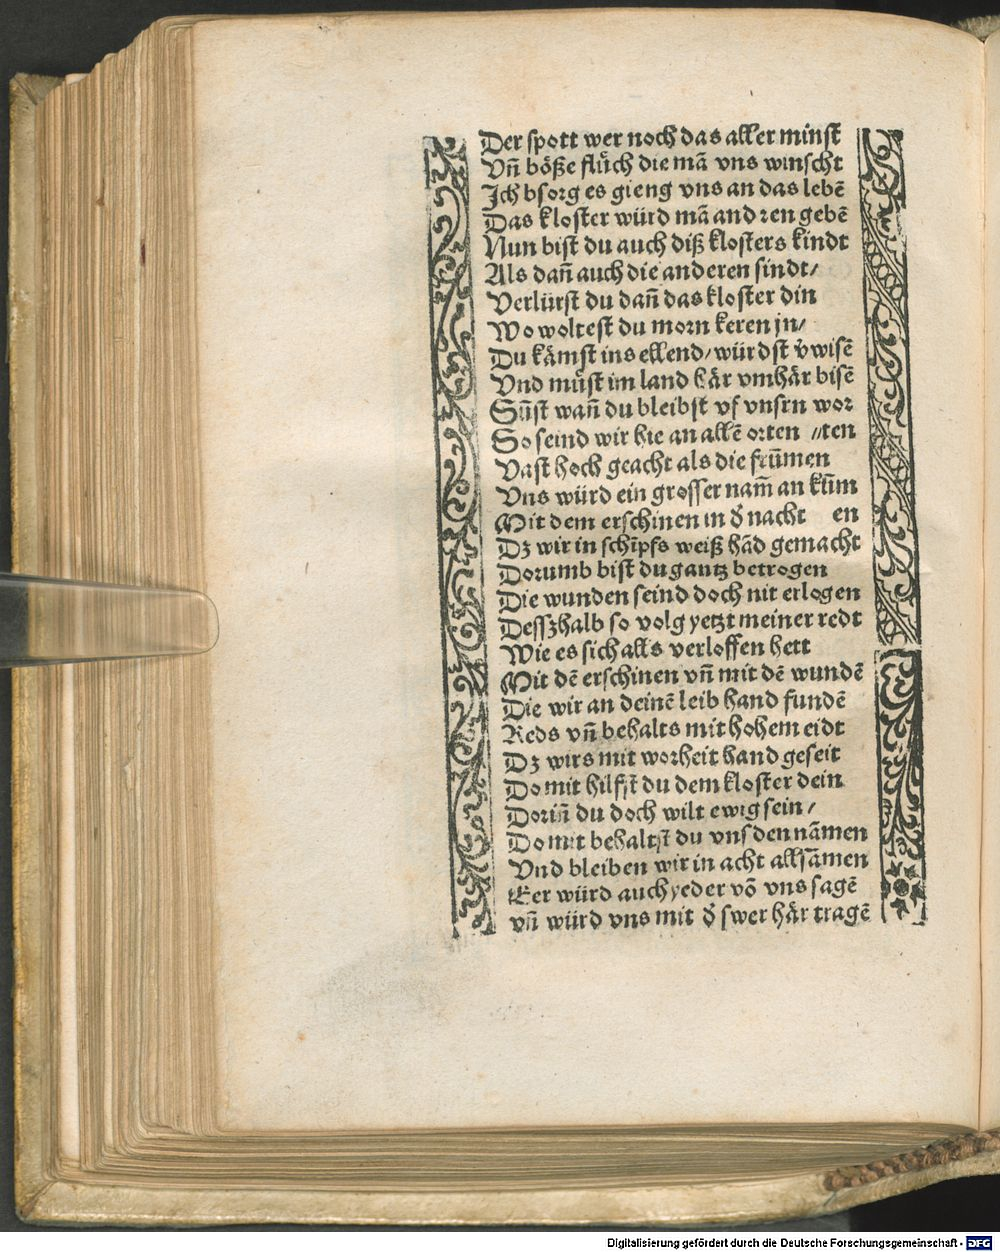 Der spott wer noch das aller minst
Vn̄ bőße flűch die mā vns winscht
Ich bsorg es gieng vns an das lebē
Das kloster würd mā andren gebē
Nun bist du auch diß klosters kindt
Als dan̄ auch die anderen sindt/
Verlürst du dan̄ das kloster din
Wo woltest du morn keren jn/
Du kämst ins ellend/ würdst v̇wisē
Vnd műst im land här vmhär bisē
Sūst wan̄ du bleibst vf vnsrn wor
So seind wir hie an allē orten //ten
Vast hoch geacht als die frūmen
Vns würd ein grosser nam̄ an kūm
Mit dem erschinen in d̓ nacht en
Dz wir in schīpfs weiß hād gemacht
Dorumb bist du gantz betrogen
Die wunden seind doch nit erlogen
Desszhalb so volg yetzt meiner redt
Wie es sich alls verloffen hett
Mit dē erschinen vn̄ mit dē wundē
Die wir an deinē leib hand fundē
Reds vn̄ behalts mit hohem eidt
Dz wirs mit worheit hand geseit
Domit hilfst du dem kloster dein
Dorin̄ du doch wilt ewig sein/
Domit behaltst du vns den nāmen
Vnd bleiben wir in acht allsāmen
Eer würd auch yeder vō vns sagē
vn̄ würd vns mit d̓ swer här tragē
Digitalisierung gefördert durch die Deutsche Forschungsgemeinschaft - DFG